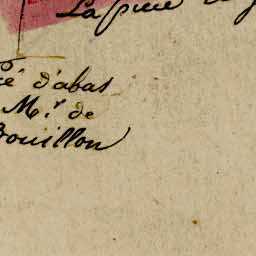 La pièce
d'abas
Mr. de
Bouillon